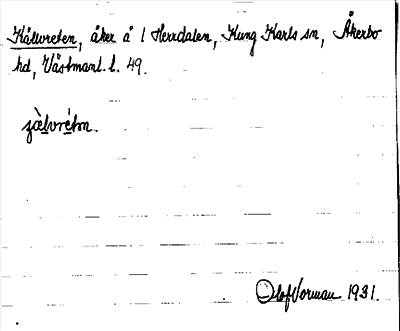 Källvreten, åker å 1 Herrdalen, Kung Karls sn, Åkerbo
hd, Västmanl. l. 49.
Olof Vorman 1931.